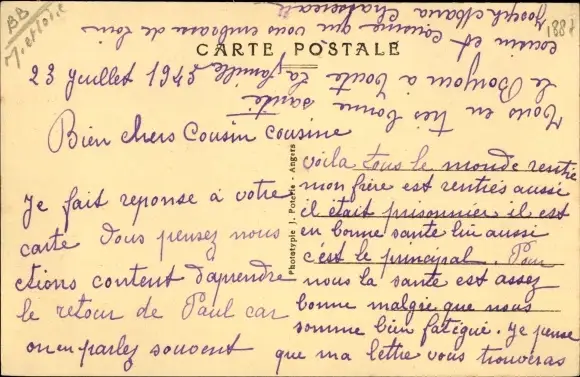 BB
M et Loire
188
CARTE POSTALE
23 juillet 1945
Bien chers Cousin cousine
Je fait reponse à votre
carte Vous pensez nous
etions content daprendre
le retour de Paul car
on en parlez souvent
Phototypie J. Poteble - Angers
voila tous le monde rentré
mon frère est rentrés aussi
il était prisonnier il est
en bonne santé lui aussi
c'est le principal. Pour
nous la santé est assez
bonne malgré que nous
somme bien fatigué. Je pense
que ma lettre vous trouveras
Tous en très bonne santé
le Bonjour à toute la famille
cousin et cousine qui vous embrasse de loin
Joseph Maria